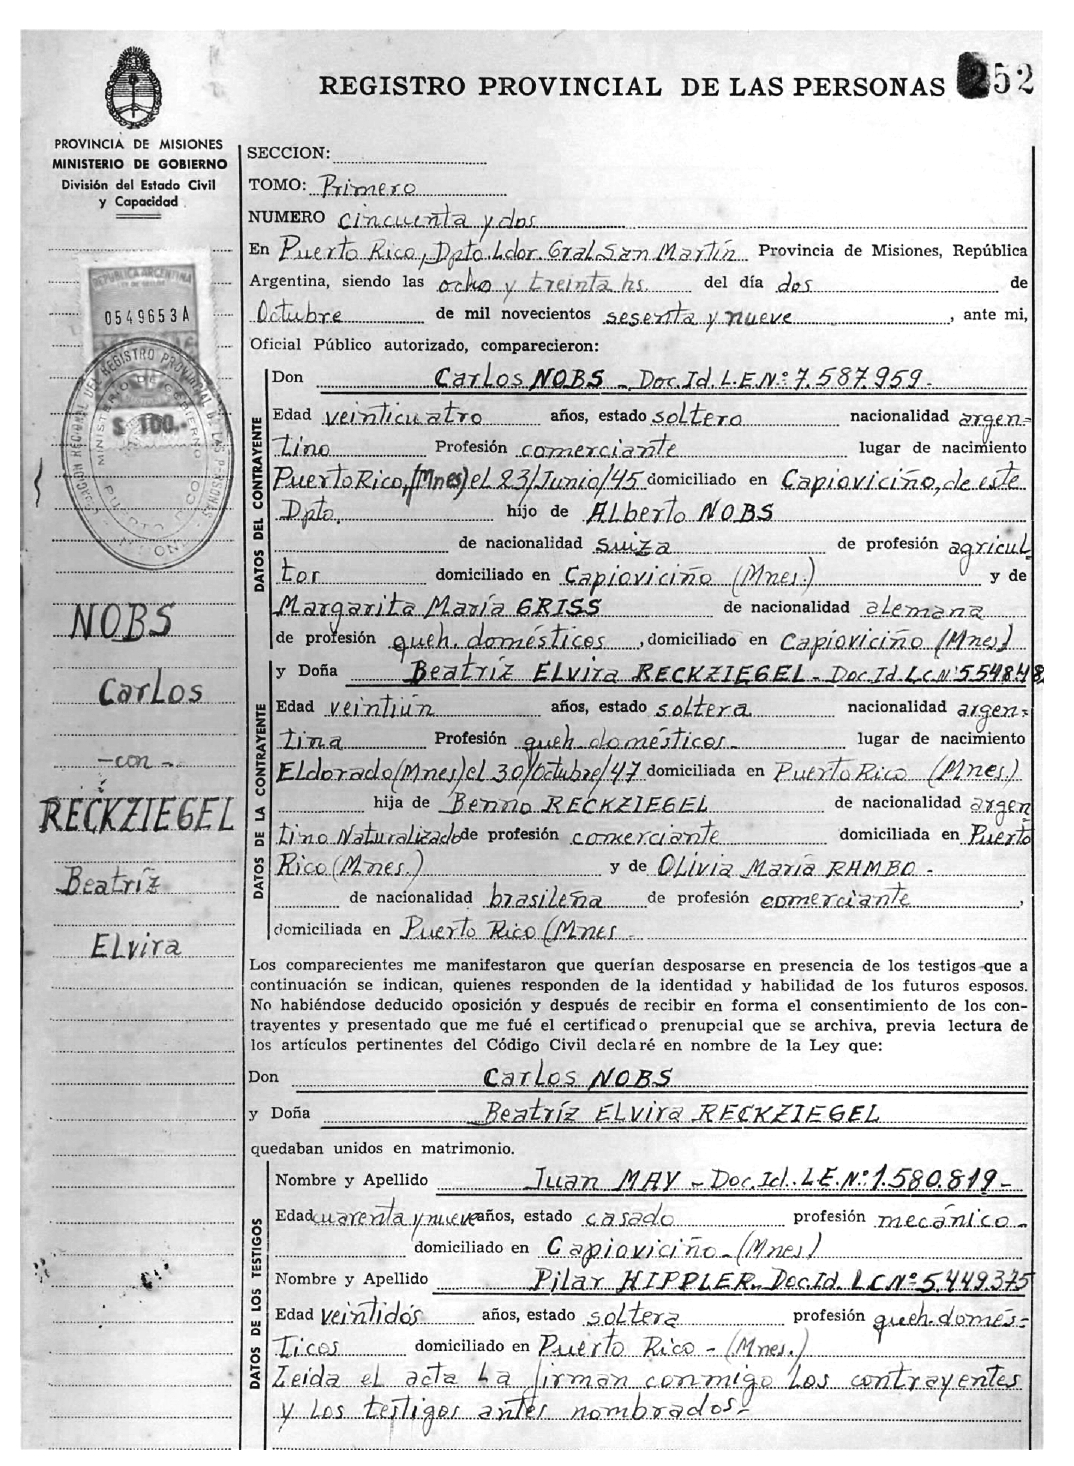 REGISTRO PROVINCIAL DE LAS PERSONAS 252
PROVINCIA DE MISIONES
MINISTERIO DE GOBIERNO
División del Estado Civil
y Capacidad
REPUBLICA ARGENTINA
0549653A
$ 100.-
NOBS
Carlos
- con -
RECKZIEGEL
Beatríz
ELvira
SECCION:
TOMO: Primero
NUMERO cincuenta y dos
En Puerto Rico, Dpto. Ldor. Gral San Martín Provincia de Misiones, República
Argentina, siendo las ocho y treinta hs. del día dos de
Octubre de mil novecientos sesenta y nueve, ante mi,
Oficial Público autorizado, comparecieron:
DATOS DEL CONTRAYENTE
Don Carlos NOBS - Doc. Id. L.E.Nº 7.587.959-
Edad veinticuatro años, estado soltero nacionalidad argen=
tino Profesión comerciante lugar de nacimiento
Puerto Rico, (Mnes) el 23/Junio/45 domiciliado en Capioviciño, de este
Dpto. hijo de Alberto NOBS
de nacionalidad suiza de profesión agricul
tor domiciliado en Capioviciño (Mnes.) y de
Margarita María GRISS de nacionalidad alemana
de profesión queh. domésticos, domiciliado en Capioviciño (Mnes)
DATOS DE LA CONTRAYENTE
y Doña Beatríz ELvira RECKZIEGEL - Doc. Id. L.C.Nº 5.548.48
Edad veintiún años, estado soltera nacionalidad argen=
tina Profesión queh. domésticos- lugar de nacimiento
Eldorado (Mnes) el 30/octubre/47 domiciliada en Puerto Rico (Mnes.)
hija de Benno RECKZIEGEL de nacionalidad argen
tino Naturalizado de profesión comerciante domiciliada en Puerto
Rico (Mnes.) y de OLivia María RAMBO -
de nacionalidad brasileña de profesión comerciante,
domiciliada en Puerto Rico (Mnes -
Los comparecientes me manifestaron que querían desposarse en presencia de los testigos que a
continuación se indican, quienes responden de la identidad y habilidad de los futuros esposos.
No habiéndose deducido oposición y después de recibir en forma el consentimiento de los con-
trayentes y presentado que me fué el certificado prenupcial que se archiva, previa lectura de
los artículos pertinentes del Código Civil declaré en nombre de la Ley que:
Don Carlos NOBS
y Doña Beatríz ELvira RECKZIEGEL
quedaban unidos en matrimonio.
DATOS DE LOS TESTIGOS
Nombre y Apellido Juan MAY - Doc. Id. L.E.Nº 1.580.819-
Edad cuarenta y nueve años, estado casado profesión mecánico -
domiciliado en Capioviciño - (Mnes)
Nombre y Apellido Pilar HIPPLER - Doc. Id. L.C.Nº 5.449.375
Edad veintidós años, estado soltera profesión queh. domés=
ticos domiciliado en Puerto Rico - (Mnes.)
Leída el acta la firman conmigo los contrayentes
y los testigos antes nombrados-